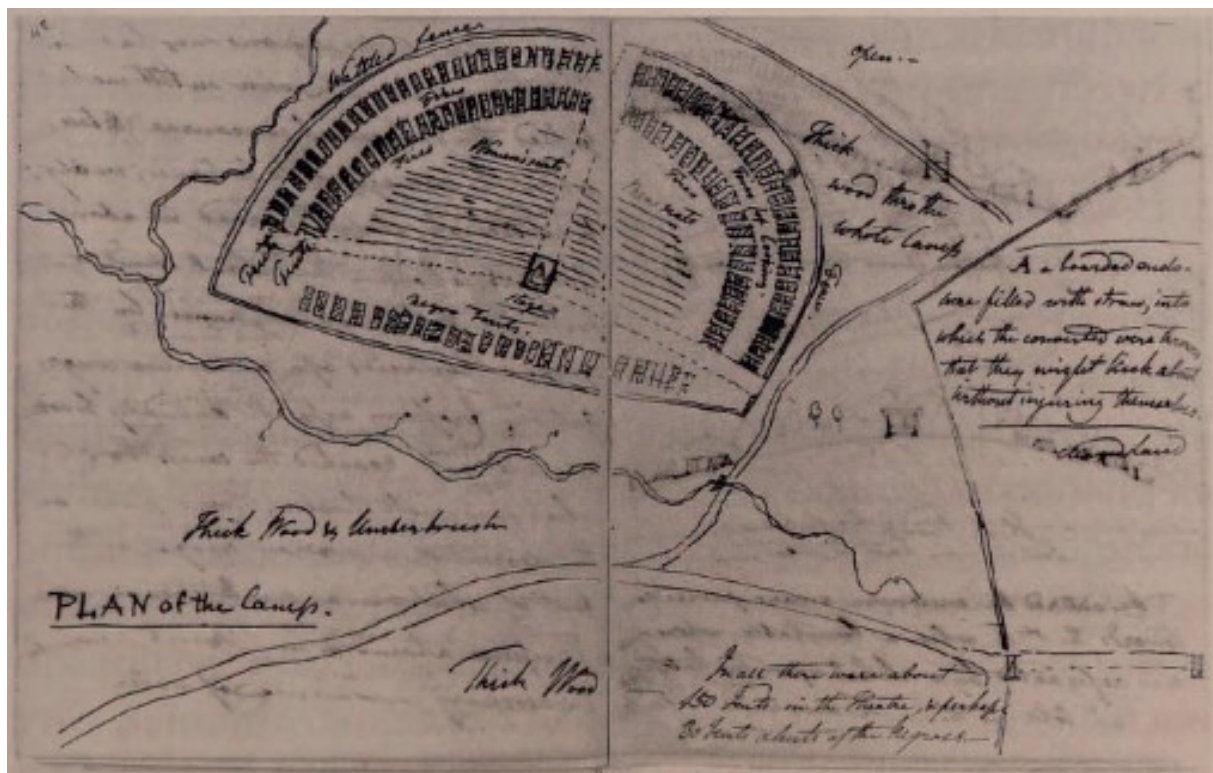 Wattled fence
open.--
Fires
Fires
Women's seats
Thick
wood thro the
whole Camp
Fires
Mens seats
Fires for Cooking
Fence
A
Stage
negro tents.
A a boarded enclo-
sure filled with straw, into
which the converted were thrown
that they might kick about
without injuring themselves
cleared Land
Thick Wood & Underbrush
PLAN of the Camp.
Thick Wood
In all there were about
150 Tents in the Theatre, & perhaps
30 tents & huts of the Negroes.--